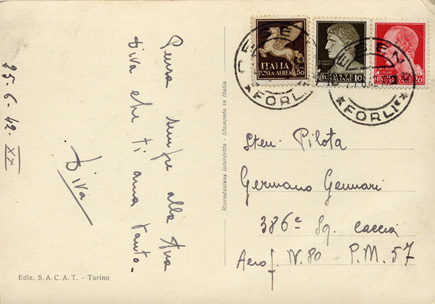 25-6-42 XX
Pensa sempre alla tua
Diva che ti ama tanto.
Diva
Ediz. S. A. C. A. T. - Torino
Riproduzione interdetta - Stampato in Italia
ITALIA
POSTA AEREA
50
10
20
FORLI
FORLI
Sten. Pilota
Germano Gennari
386ª Sq. Caccia
Aerof. N. 80 P. M. 57